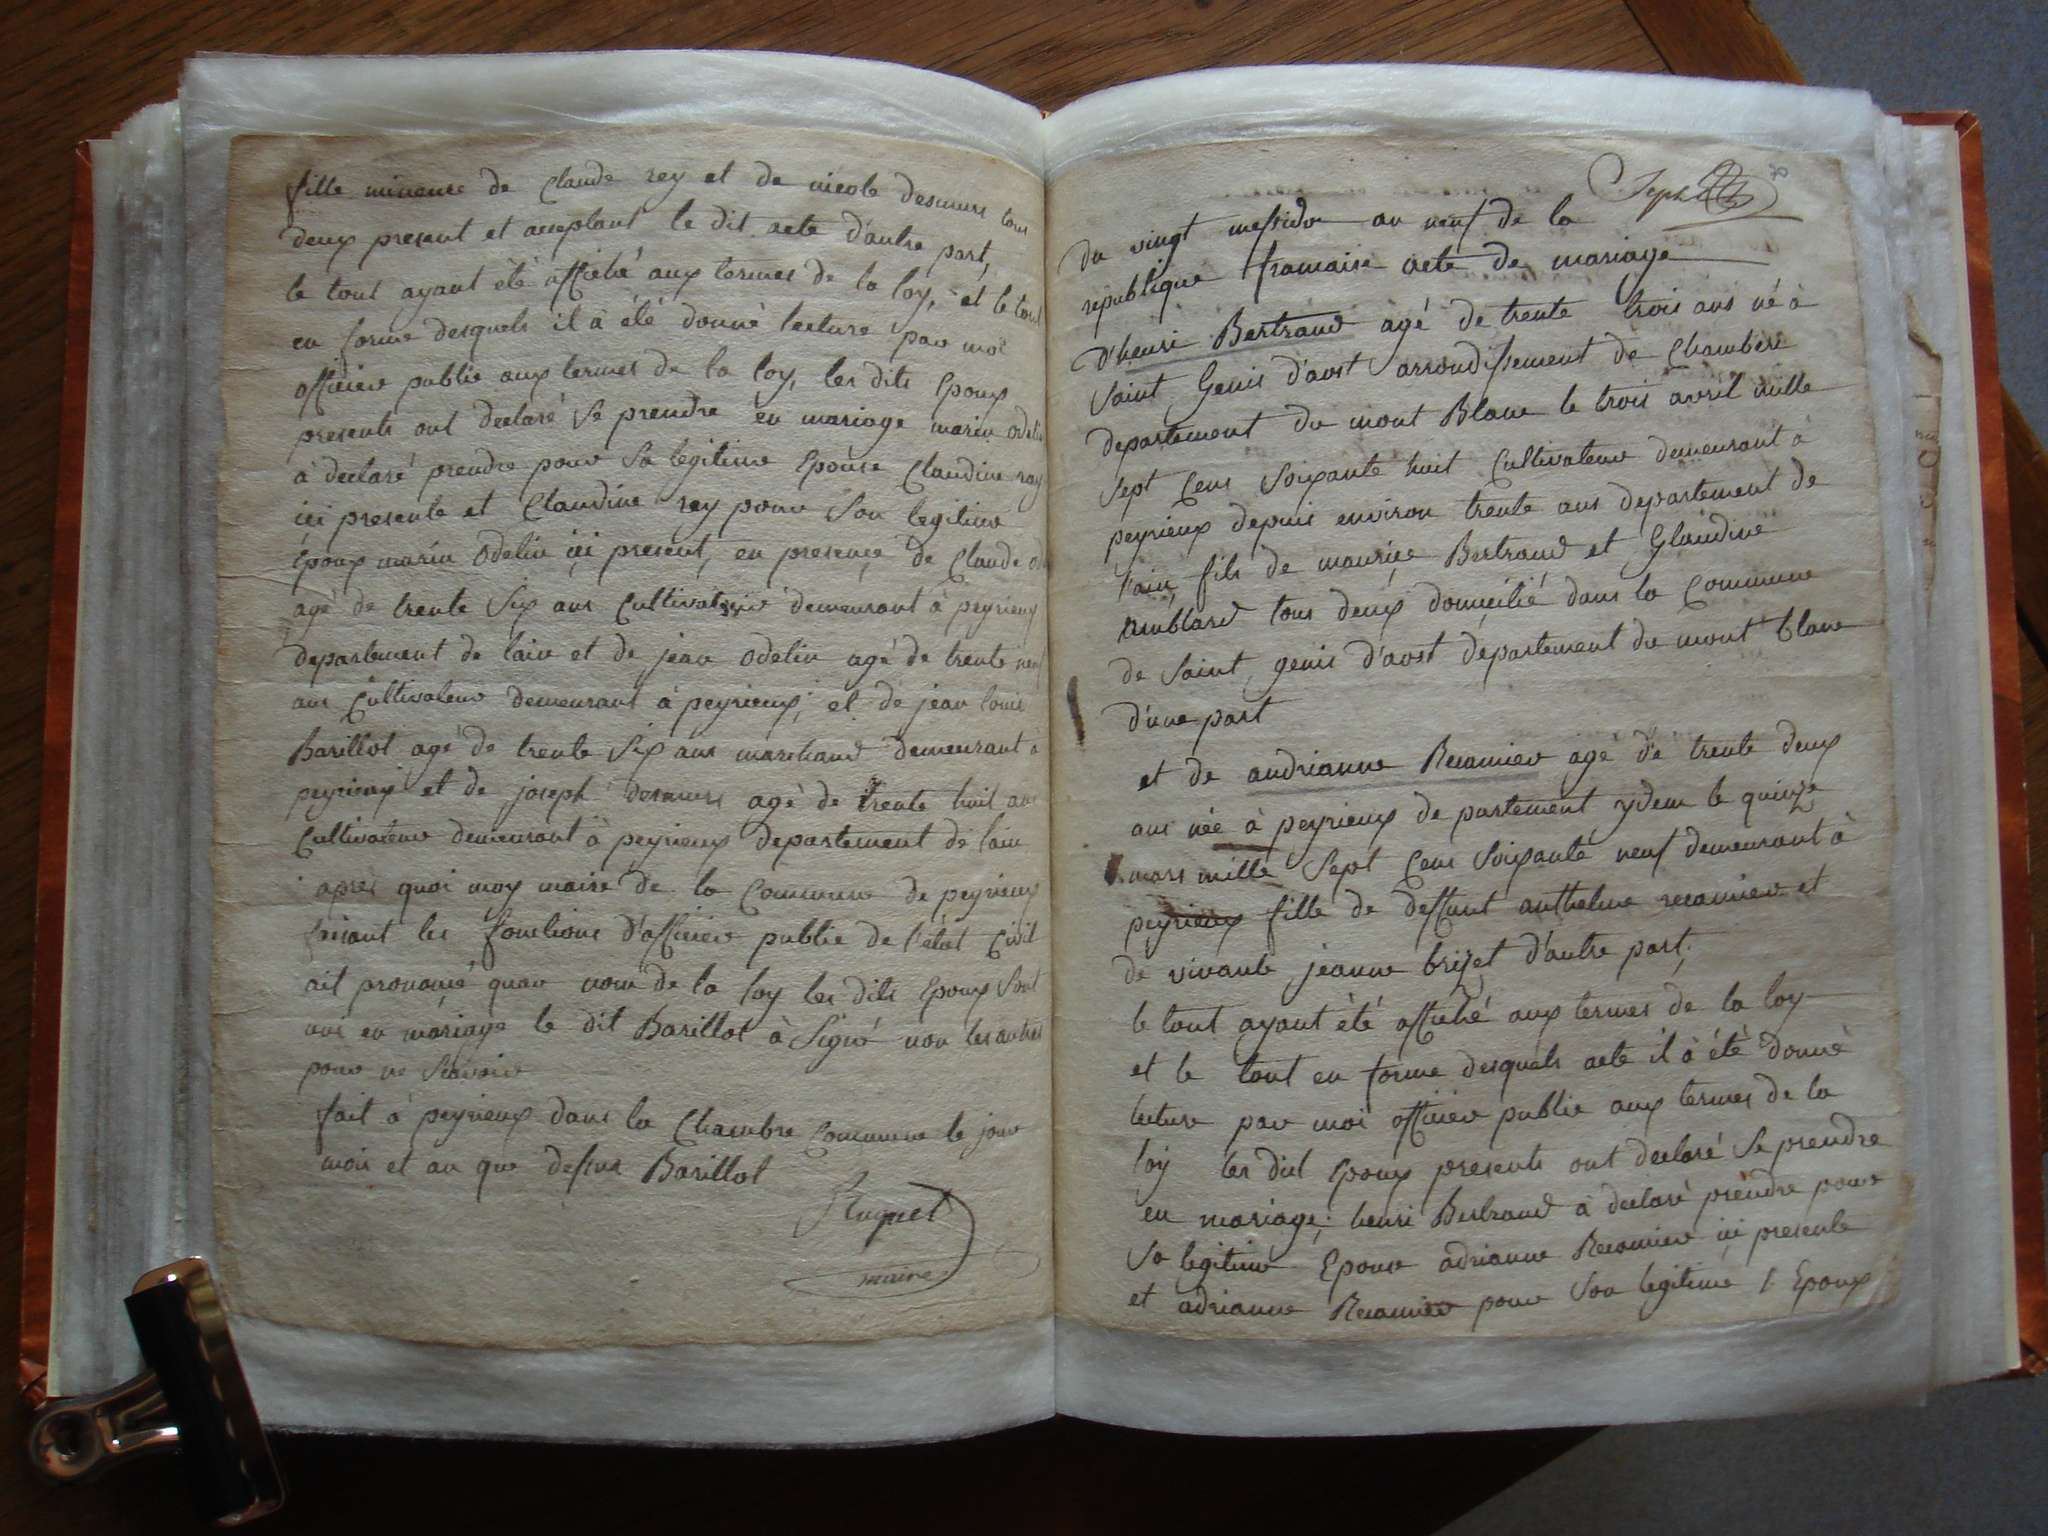 fille mineure de Claude rey et de nicole desmurs tous
deux present et acceptant le dit acte d'autre part,
le tout ayant été affiché aux termes de la loy, et le tout
en forme desquels il à été donné lecture par moi
officier public aux termes de la loy, les dits Epoux
presents ont declaré se prendre en mariage marin odelin
à declaré prendre pour sa legitime Epouse Claudine rey
ici presente et Claudine rey pour son legitime
Epoux marin odelin içi present, en presençe de Claude
agé de trente six ans Cultivateur demeurant à peyrieux
departement de lain et de jean odelin agé de trente neuf
ans Cultivateur demeurant à peyrieux, et de jean louis
Barillot agé de trente six ans marchand demeurant à
peyrieux et de joseph desmurs agé de trente huit ans
Cultivateur demeurant à peyrieux departement de lain
apres quoi moy maire de la Commune de peyrieux
faisant les fonctions d'officier public de l'état Civil
ait prononcé quau nom de la loy les dits Epoux sont
unis en mariage le dit Barillot à signé non les autres
pour ne sçavoir
fait à peyrieux dans la Chambre Commune le jour
mois et an que dessus Barillot
Huguet
maire
du vingt messidor an neuf de la
republique framaise acte de mariage
d'henri Bertrand agé de trente trois ans né à
Saint Genis d'aost arrondissement de Chamberi
departement du mont Blanc le trois avril mille
sept Cens Soixante huit Cultivateur demeurant à
peyrieux depuis environ trente ans departement de
l'ain, fils de mauriçe Bertrand et Glaudine
amblard tous deux domicilié dans la Commune
de Saint genis d'aost departement du mont blanc
d'une part
et de andrianne Recamier agé de trente deux
ans née à peyrieux de partement ydem le quinze
mars mille Sept Cens Soixante neuf demeurant à
peyrieux fille de deffunt anthelme recamier et
de vivante jeanne brizet d'autre part;
le tout ayant été affiché aux termes de la loy
et le tout en forme desquels acte il à été donné
lecture par moi officier public aux termes de la
loy les dit Epoux presents ont declaré se prendre
en mariage; henri Bertrand à declaré prendre pour
sa legitime Epouse adrianne Recamier ici presente
et adrianne Recamier pour son legitime Epoux